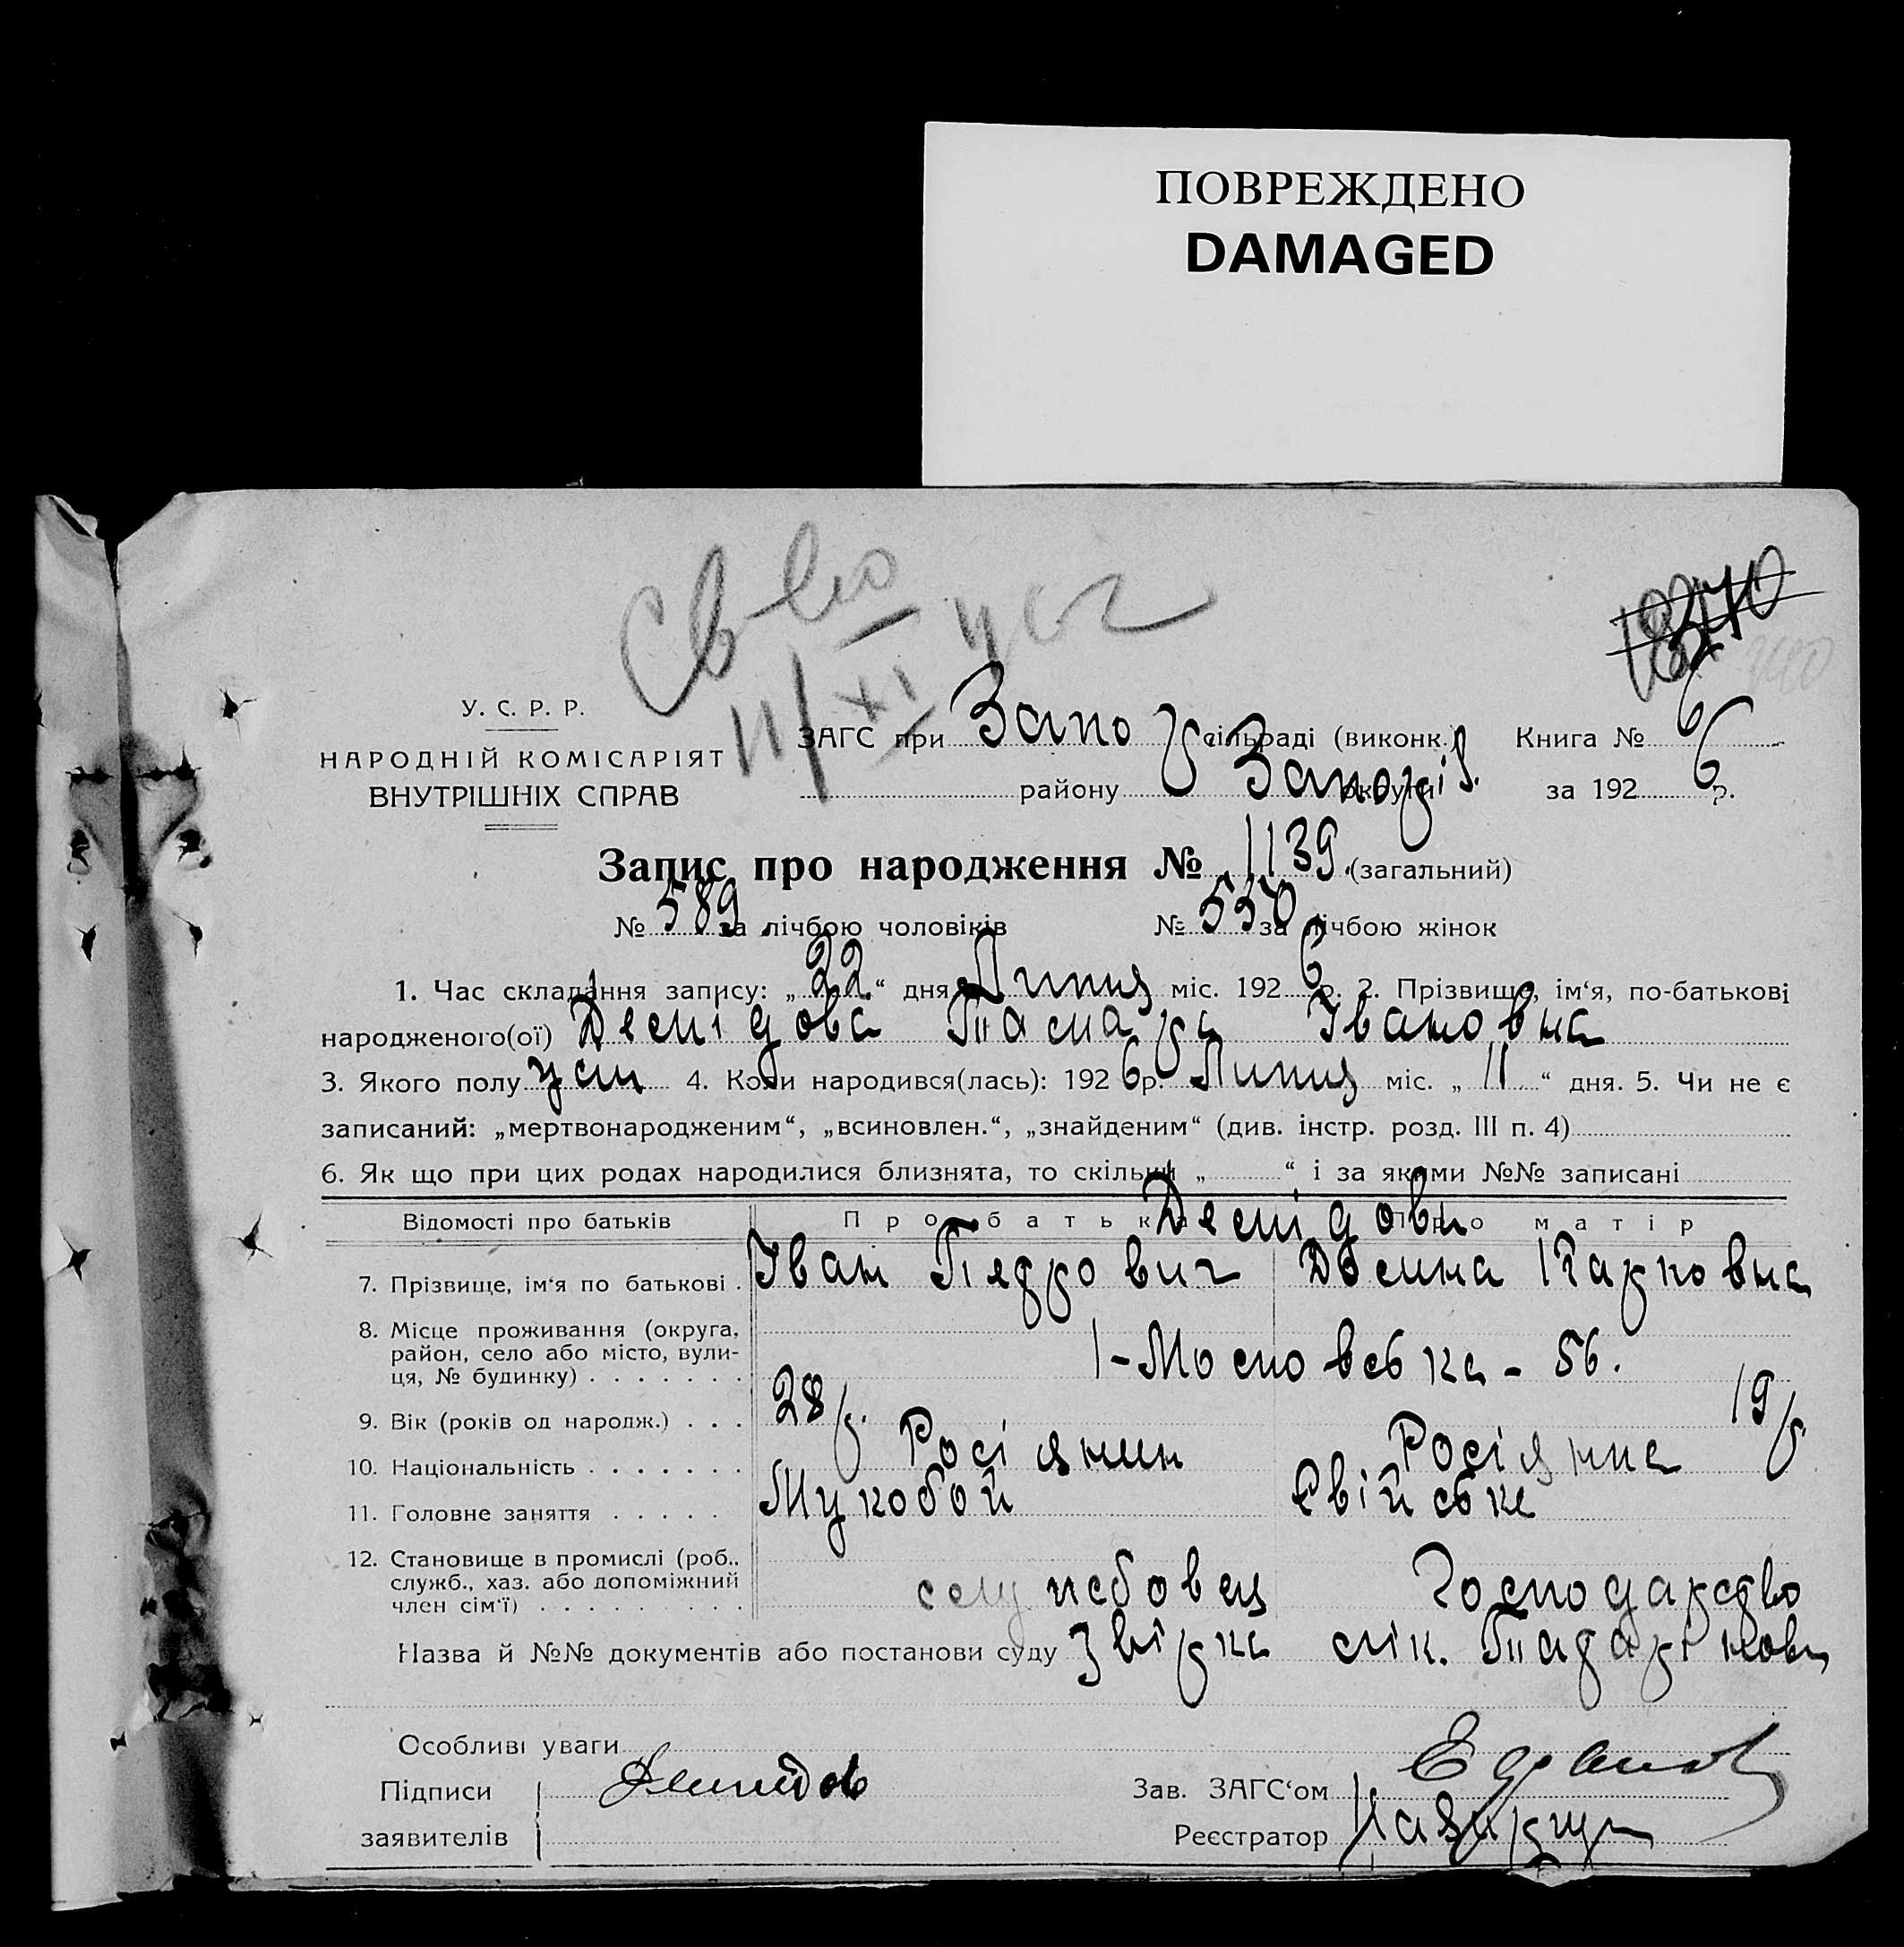 ПОВРЕЖДЕНО
DAMAGED
Св-во
11/XI
У. С. Р. Р.
НАРОДНІЙ КОМІСАРІЯТ
ВНУТРІШНІХ СПРАВ
ЗАГС при Запо сільраді (виконк.) Книга № 6
району Запоріз. округи за 1926 р.
Запис про народження № 1139 (загальний)
№ 589 за лічбою чоловіків № 550 за лічбою жінок
1. Час складання запису: „22“ дня Липня міс. 1926 р. 2. Прізвище, ім‘я, по-батькові
народженого(ої) Демідова Тамара Івановна
3. Якого полу жін 4. Коли народився(лась): 1926 р. Липня міс. „11“ дня. 5. Чи не є
записаний: „мертвонародженим“, „всиновлен.“, „знайденим“ (див. інстр. розд. III п. 4)
6. Як що при цих родах народилися близнята, то скільки „ “ і за якими №№ записані
Відомості про батьків Про батька Про матір
Демідови
7. Прізвище, ім‘я по батькові . Іван Пядрович Домна Карповна
8. Місце проживання (округа,
район, село або місто, вули-
ця, № будинку) . . . . . . . 1-Московська - 56.
9. Вік (років од народж.) . . . 28 р. 19 р.
10. Національність . . . . . . . Росіянин Росіянка
11. Головне заняття . . . . . Свійське
12. Становище в промислі (роб..
служб., хаз. або допоміжний
член сім‘ї) . . . . . . . . . служебовец Господарство
Назва й №№ документів або постанови суду Звірка лік.
Особливі уваги
Підписи Демидов Зав. ЗАГС‘ом
заявителів Реєстратор